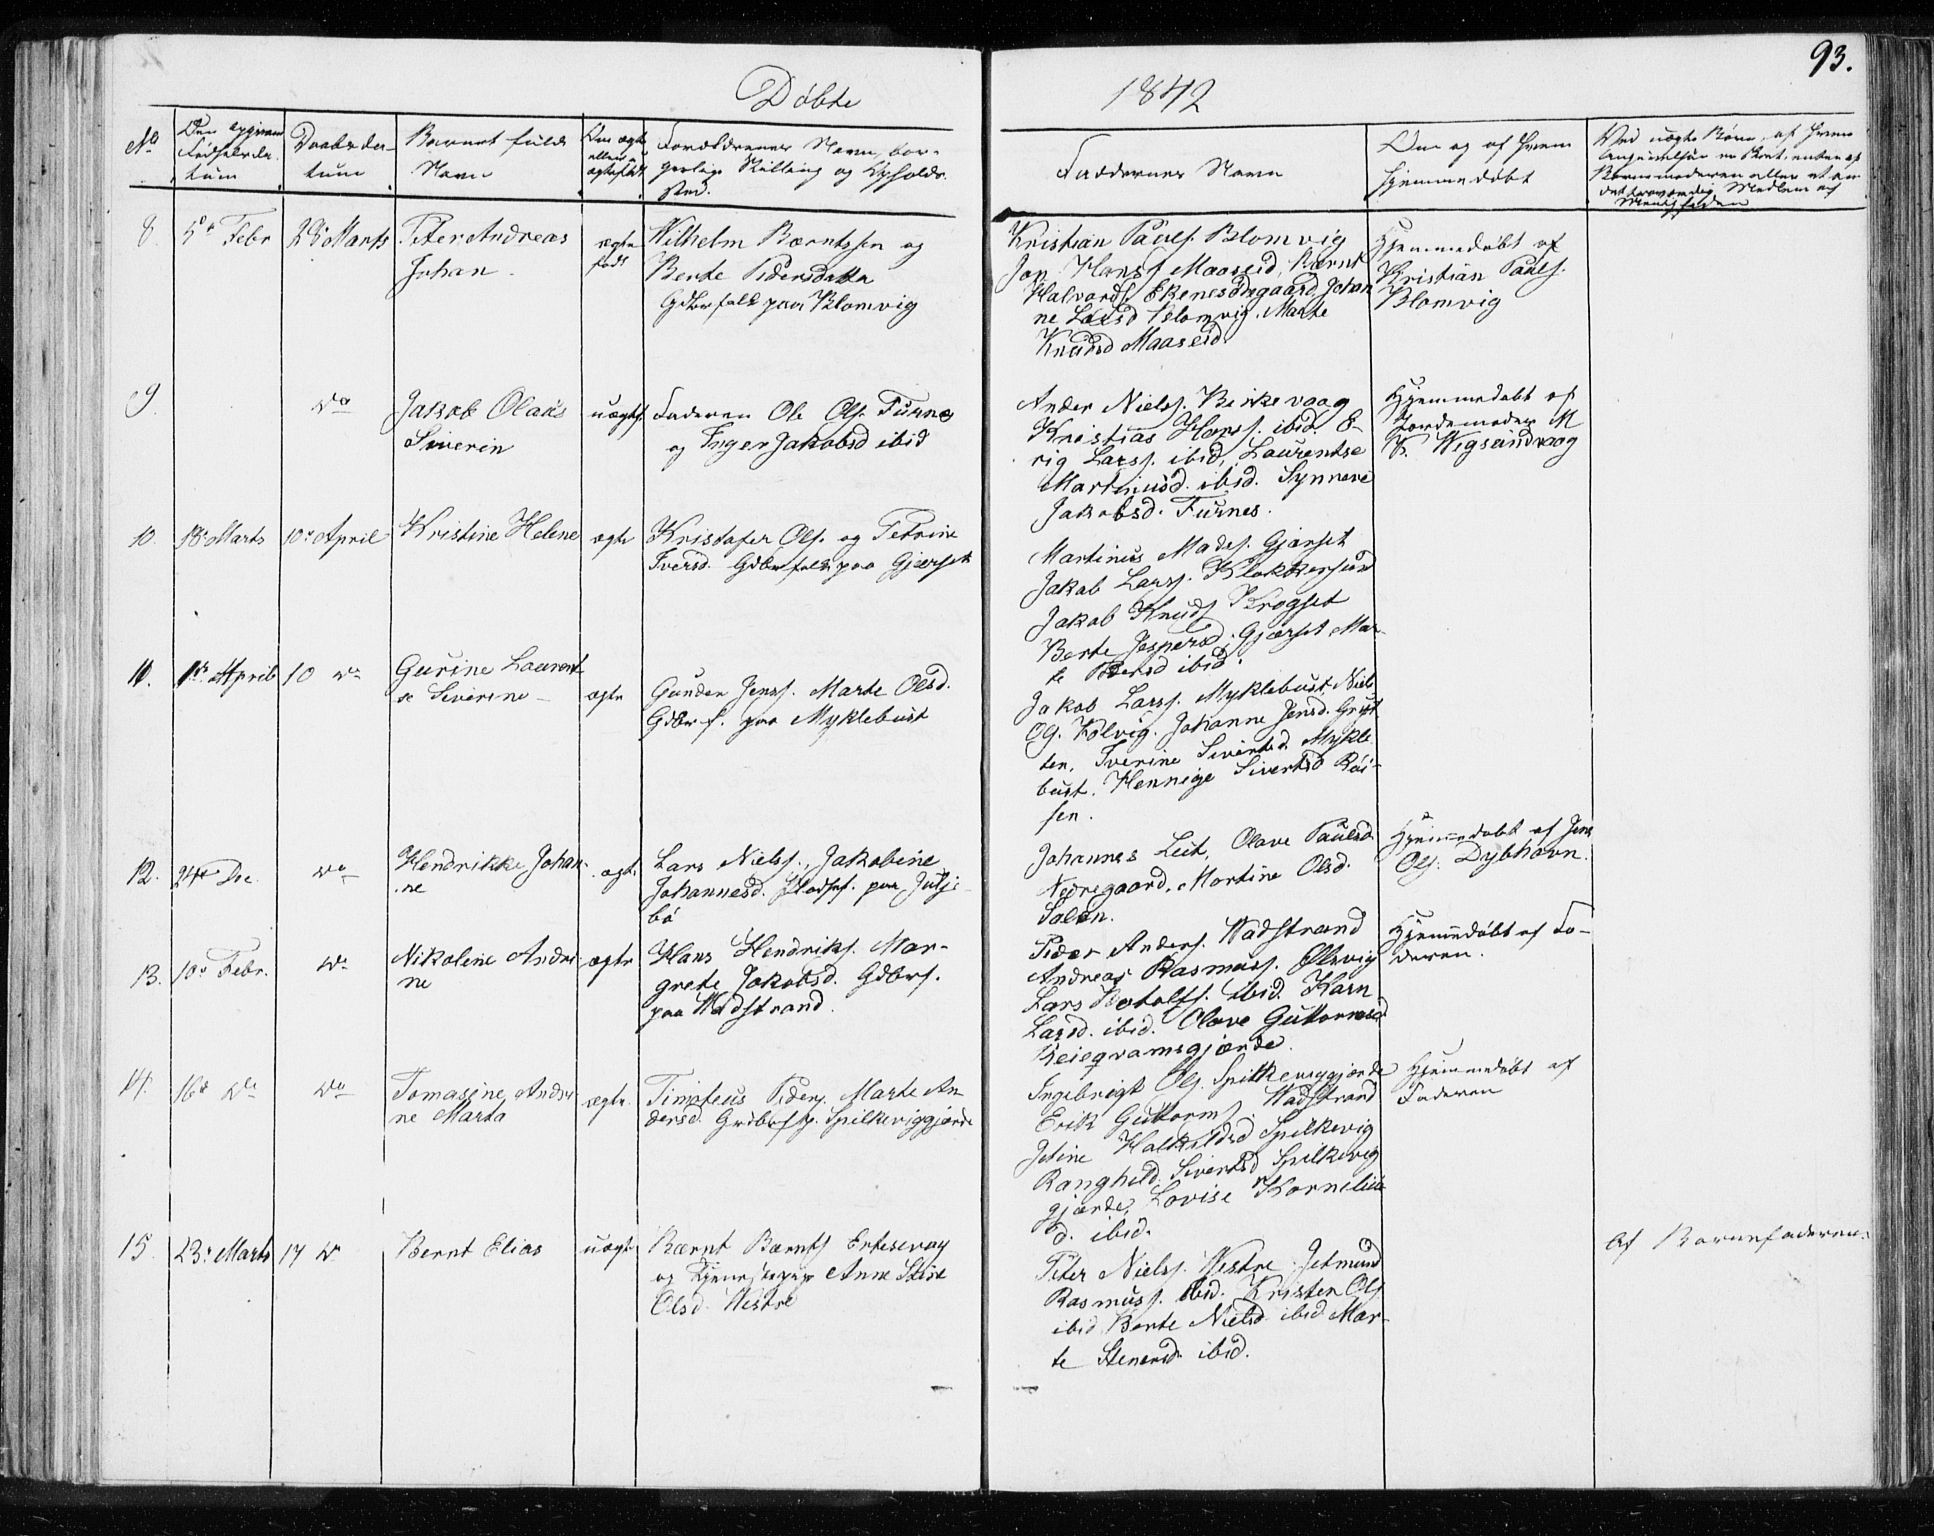 93.
Døbte
1842
No
Den opgivne
Fødselsda-
tum
Daabsda-
tum
Barnets fulde
Navn
Om ægte
eller u-
ægtefødt
Forældrenes Navn, bor-
gerlige Stilling og Opholds-
sted.
Faddernes Navn
Om og af hvem
hjemmedøbt
Ved uægte Børn, af hvem
Angivelsen er skeet, enten af
Barnemoderen eller et an
det troværdig Medlem af
Menigheden
8.
5te Febr
28 Marts
Peter Andreas
Johan
ægte
født
Wilhelm Bærntssen og
Berte Pedersdatter
Gdbrfolk paa Blomvig
Kristian Pauls. Blomvig
Jon Hanss. Maaseid, Bærnt
Halvards. Ekenesødegaard, Johan
ne Larsd Blomvig. Marte
Knudsd Maaseid.
Hjemmedøbt af
Kristian Pauls.
Blomvig
9
do
Jakob Olaus
Siverin
uægte
Faderen Ole Ols. Furnes
og Inger Jakobsd ibid
Ander Niels. Birkevaag
Kristias Hans. ibid. E-
rig Larss. ibid, Laurentse
Martinusd. ibid. Synneve
Jakobsd. Furnes.
Hjemmedøbt af
Jordemoder M
K. Wigsundvaag
10.
18de Marts
10de April
Kristine Helene
ægte
Kristofer Ols. og Petrine
Iversd. Gdbrfolk paa Gjærset
Martinus Mads. Gjærset
Jakob Larss. Klokkersund
Jakob Knuds Krogset
Berte Jespersd. Gjærset Mar-
te Pedersd ibid.
11.
1ste April
10 do
Gurine Laurent
se Siverine
ægte
Gunder Jenss. Marte Olsd.
Gdbrf. paa Myklebust
Jakob Larss. Myklebust, Niels
Og. Kolvig. Johanne Jensd. Gryt
ten, Iverine Sivertsd. Mykle
bust. Hennige Sivertsd Røi-
sen.
12.
24de Dec.
do
Hendrikke Johan-
ne
ægte
Lars Niels., Jakobine
Johannesd. Pladsf. paa Jutje-
bø
Johannes Leit, Olave Paulsd
Nedregaard. Martine Olsd.
Solen.
Hjemmedøbt af Jens
Ols. Dybhavn.
13.
10de Febr.
do
Nikoline Andri-
ne
ægte
Hans Hendriks. Mar-
grete Jakobsd. Gdbrf.
paa Wadstrand.
Peder Anders. Wadstrand
Andreas Rasmuss. Olsvig
Lars Botolfs. ibid. Karn
Larsd. ibid. Olave Guttormsd
Breiegramsgjærde.
Hjemmedøbt af Fa-
deren.
14.
16de do
do
Tomasine, Andri
ne Marta
ægte
Timoteus Peders. Marte An
dersd. Grdbrf p. Spilkeviggjærde
Ingebrigt Ols. Spilkeviggjærde
Erik Guttorms. Wadstrand
Jetine Halkildsd Spilkevig
Ranghild Sivertsd Spilkevig
gjærde, Lovise Kornelius
d. ibid.
Hjemmedøbt af
Faderen
15.
23de Marts
17 do
Bernt Elias
uægte
Bærnt Bærnts Ertesvaag
og Tjenestepige Anne Stine
Olsd. Westre
Peter Niels. Westre. Jetmund
Rasmuss. ibid. Kristen Ols
ibid Berte Nielsd ibid Mar-
te Stenersd. ibid.
Af Barnefaderen.